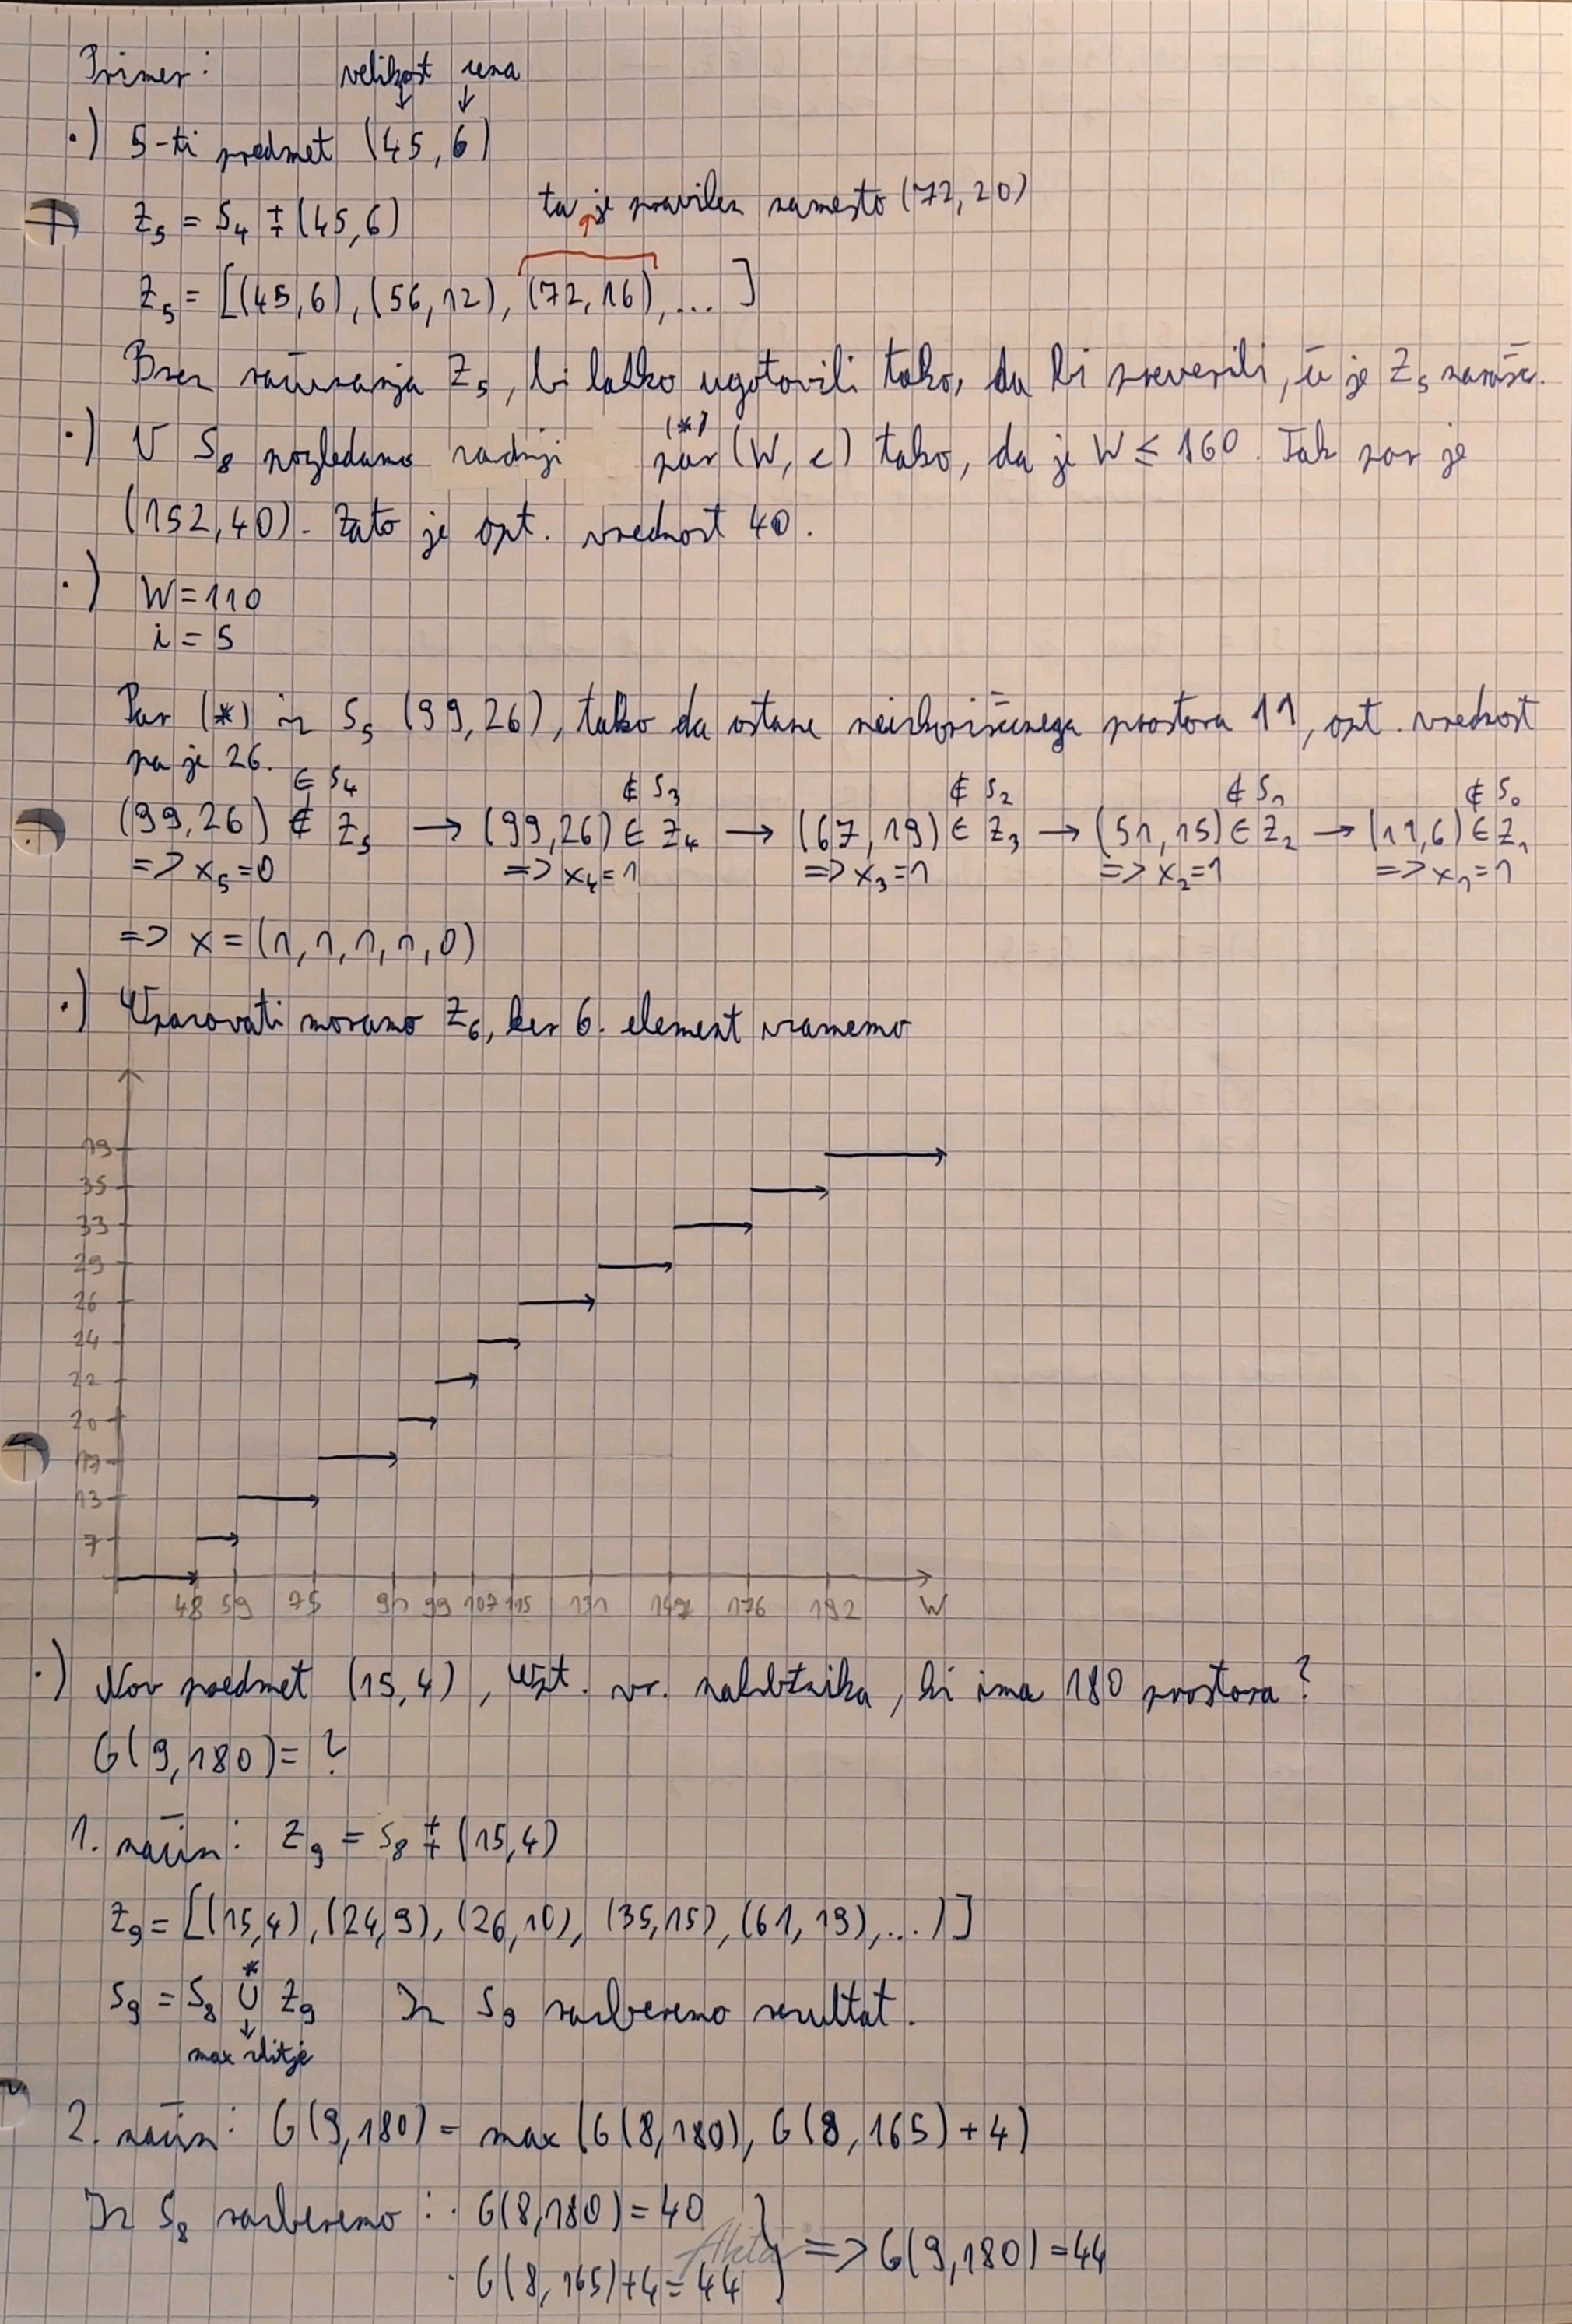 Primer:
velikost cena
↓ ↓
•) 5-ti predmet (45,6)
ta je pravilen namesto (72,20)
Z₅ = S₄ ∓ (45,6)
Z₅ = [(45,6), (56,12), (72,16), ... ]
Brez računanja Z₅, bi lahko ugotovili tako, da bi preverili, če je Z₅ narašč.
(*)
•) V S₈ pogledamo zadnji par (W, c) tako, da je W ≤ 160. Tak par je
(152,40). Zato je opt. vrednost 40.
•) W=110
i = 5
Par (*) iz S₅ (99,26), tako da ostane neizkoriščenega prostora 11, opt. vrednost
pa je 26.
∈ S₄ ∉ S₃ ∉ S₂ ∉ S₁ ∉ S₀
(99,26) ∉ Z₅ → (99,26) ∈ Z₄ → (67,19) ∈ Z₃ → (51,15) ∈ Z₂ → (11,6) ∈ Z₁
=> x₅=0 => x₄=1 => x₃=1 => x₂=1 => x₁=1
=> x = (1,1,1,1,0)
•) Upoštevati moramo Z₆, ker 6. element vzamemo
39
35
33
29
26
24
22
20
17
13
7
48 59 75 91 99 107 115 131 147 176 192 W
•) Nov predmet (15,4), opt. vr. nahrbtnika, ki ima 180 prostora?
G(9,180) = ?
1. način: Z₉ = S₈ ∓ (15,4)
Z₉ = [(15,4), (24,9), (26,10), (35,15), (61,19), ...)]
*
S₉ = S₈ ∪ Z₉ Iz S₉ razberemo rezultat.
↓
max zlitje
2. način: G(9,180) = max (G(8,180), G(8,165)+4)
Iz S₈ razberemo: • G(8,180) = 40
=> G(9,180) = 44
• G(8,165)+4 = 44